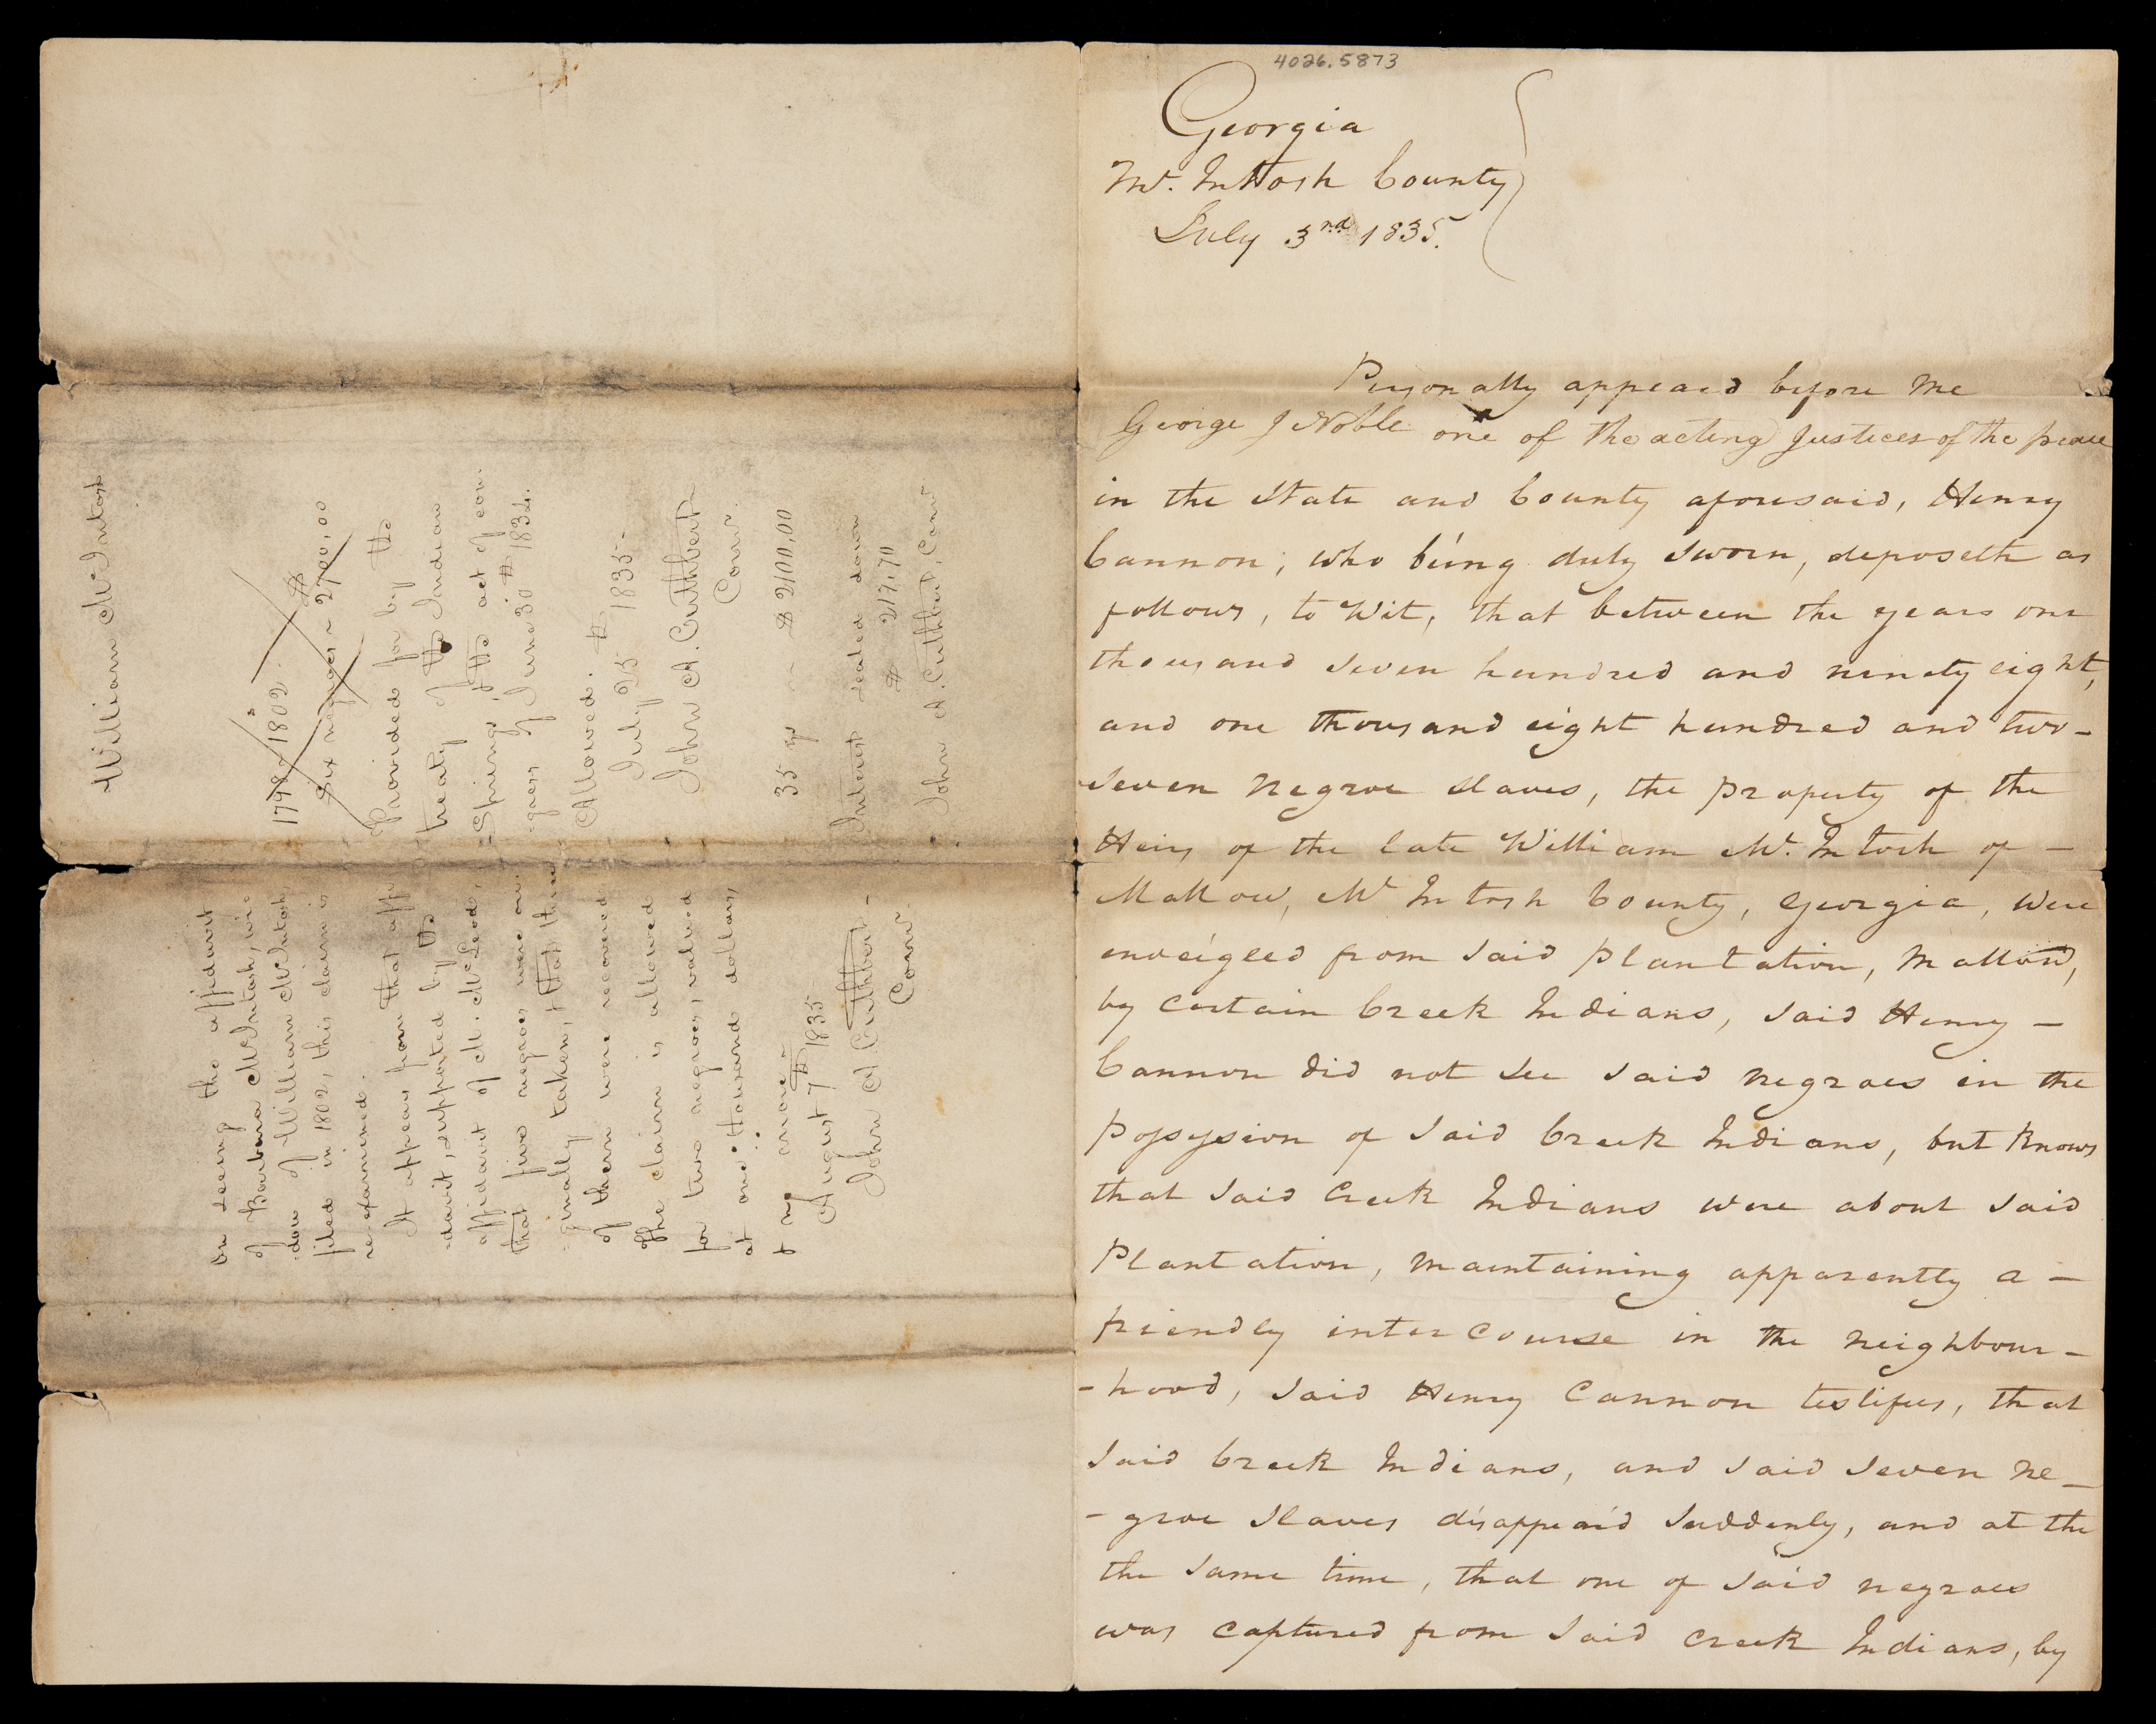 4026.5873
Georgia
Mc. Intosh County
July 3rd 1835.
Personally appeard before me
George J Noble one of the acting Justices of the peace
in the State and County aforesaid, Henry
Cannon; who being duly Sworn, deposeth as
follows, to Wit, that between the years one
thousand Seven hundred and ninety eight,
and one thousand eight hundred and two-
Seven Negroe Slaves, the property of the
Heirs of the late William Mc. Intosh of -
Mallow, Mc Intosh County, Georgia, were
enveigled from Said plantation, Mallow,
by certain Creek Indians, Said Henry -
Cannon did not See Said negroes in the
possession of Said Creek Indians, but knows
that Said Creek Indians were about Said
Plantation, maintaining apparently a -
friendly intercourse in the neighbour-
-hood, Said Henry Cannon testifies, that
Said Creek Indians, and Said Seven ne-
-groe Slaves disappeard Suddenly, and at the
the Same time, that one of Said negroes
was captured from Said Creek Indians, by
William McIntosh
1798 1802.
Six negroes ~ $2700,00
Provided for by the
treaty of the Indian
Springs & the act of con-
-gress of June 30th 1834.
Allowed.
July 25th 1835-
John A. Cuthbert
Comr.
35 ~ $2100,00
Interest scaled down
$ 217,70
John A. Cuthbert, Comr
On seeing the affidavit
of Barbara McIntosh, wi-
-dow of William McIntosh
filed in 1802, this claim is
re-examined.
It appears from that affi-
-davit, supported by the
affidavit of M. McLeod,
that five negroes were ori-
-ginally taken, & that three
of them were recovered
The claim is allowed
for two negroes, valued
at one thousand dollars,
& no more -
August 7th 1835
John A. Cuthbert -
Comr.